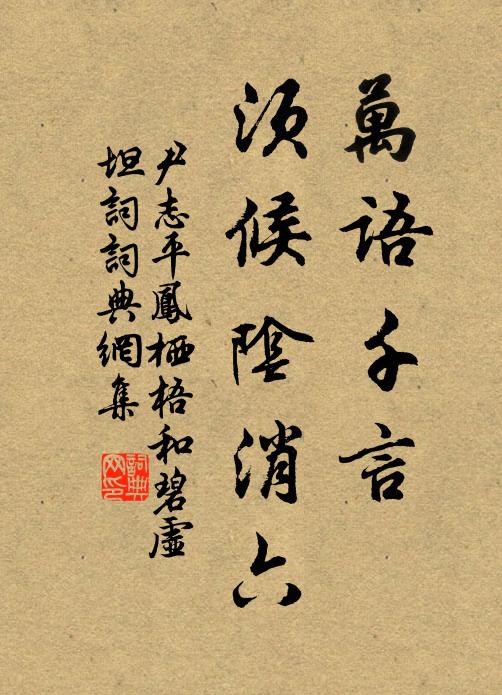 萬語千言
須候陰消六
尹志平鳳栖梧和碧虛
坦詞詞典網集
詞典网印